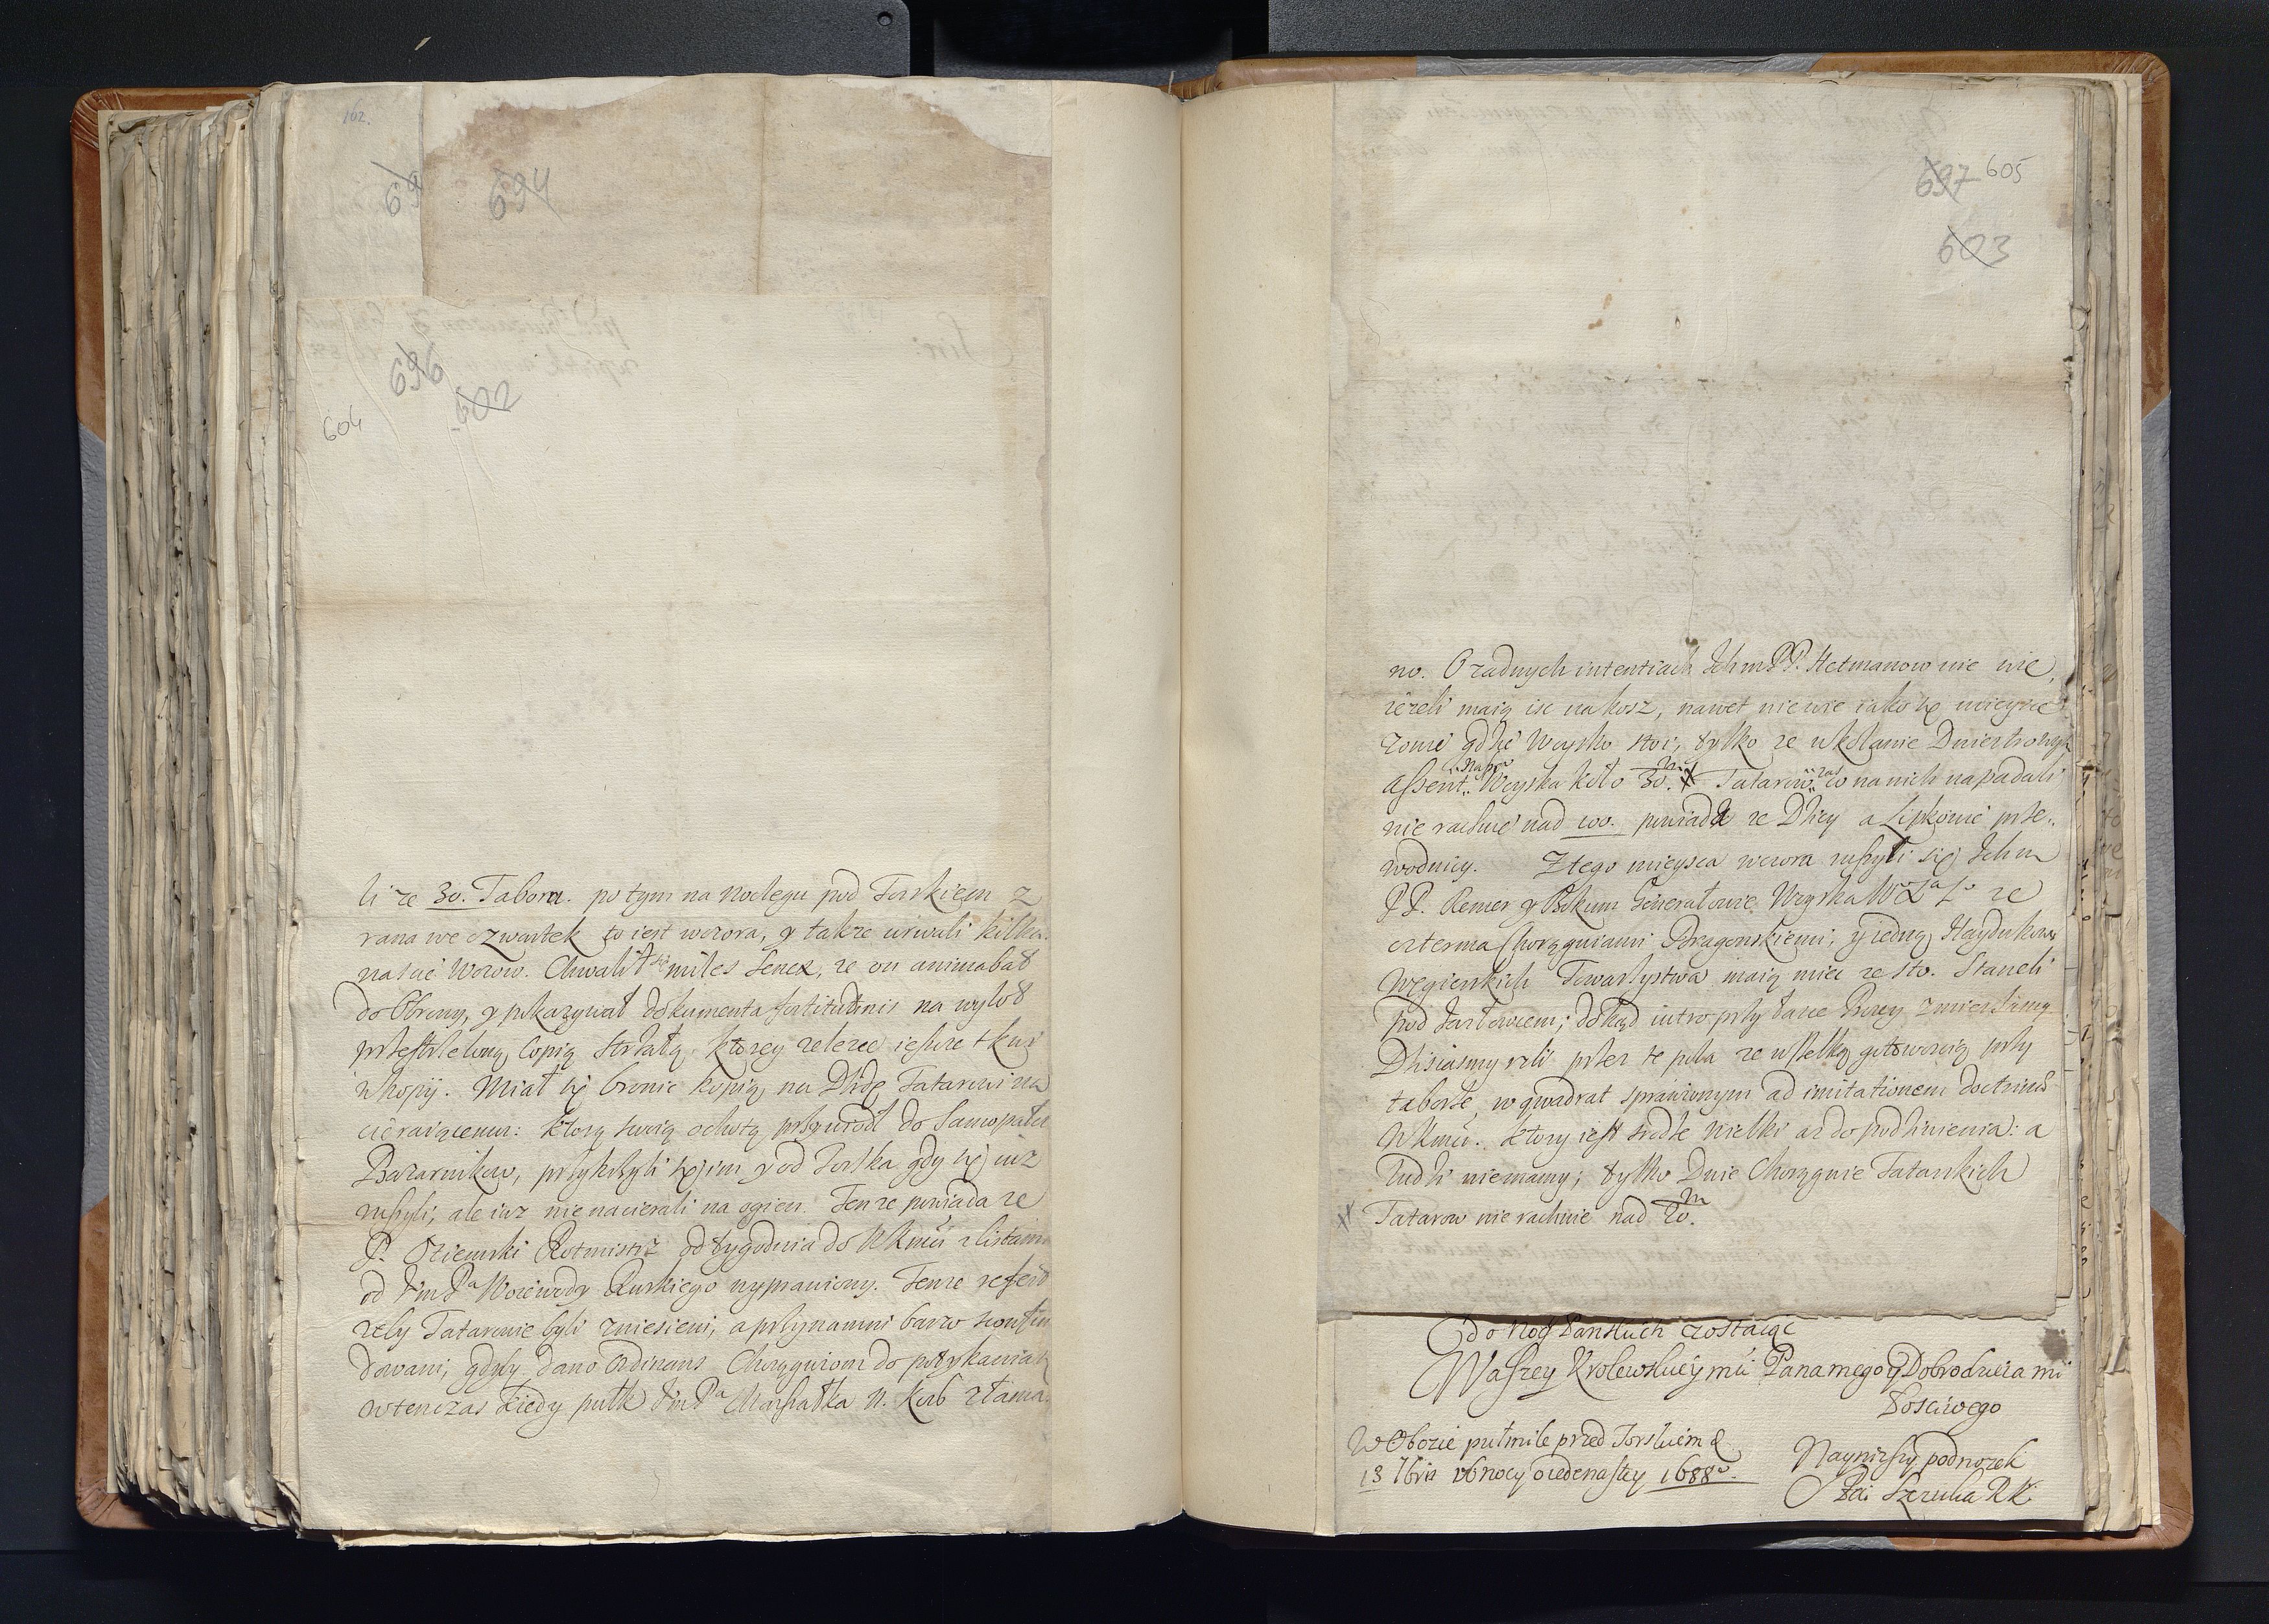 162.
69
694
696
602
604
li ze 30. Tabora. potym na noclegu pod Torskiem z
rana we czwartek to iest wczora, y także urwali kilka.
nascie Wozow. Chwalił się miles Senex, ze on animabat
do Obrony, y pokazywał dokumenta fortitudinis na wylot
przestrzeloną Copią strzałą, ktorey zelezce ieszcze tkwi
w kopij. Miał się bronic kopią na Dzidę Tatarowi na
cieraiącemu: ktorą swoią ochotą przywiodł do Samopału
Bazarnikow, przykrzyli się im y od Torska gdy się iuz
ruszyli, ale iuz nie nacierali na ogien. Tenze powiada ze
P. Oziemski Rotmistrz od tygodnia do WKmci z listami
od Jm Pa Woiewody Ruskiego wyprawiony. Tenze refert
zeby Tatarowie byli zniesieni, a przynamni barzo
dowani, gdyby dano Ordinans Chorągwiom do potykania
wtenczas kiedy pułk Jm Pa Marszałka N. Kor złama.
697 605
603
no. O zadnych intentiach Ichm PP. Hetmanow nie wie,
iezeli maią isc na kosz, nawet nie wie iako się mieysce
zowie gdzie Woysko stoi, tylko ze w kolanie Dniestrowym
assent. Woyska koło 30. m Tatarow zas co na nich napadali
nie rachuie nad 100. powiada ze Dzicy a Lipkowie prze..
wodnicy. Z tego mieysca wczora ruszyli się Ichm
PP. Remer y Bokum Generałowie Woyska WoXaLo ze
czterma Chorągwiami Dragonskiemi, y iedną Haydukow
Węgierskich Towarzystwa maią miec ze sto. Stanęli
pod Jazłowcem; dokąd iutro przy łasce Bozey zmierzamy
Dzisiasmy szli przez te pola ze wszelką gotowością przy
taborze, w qwadrat sprawionym ad imitationem doctrinae
WKmci. ktory iest srodze wielki az do podziwienia: a
ludzi niemamy; tylko Dwie Chorągwie Tatarskich
Tatarow nie rachuie nad 20. m
do Nog Panskich zostaiąc
Waszey Krolewskieymci Pana mego y Dobrodzieia mi
łosciwego
W Obozie pułmile przed Torskiem d
13 7bris w nocy o iedenastey 1688o.
Naynizszy podnozek
Szczuka RK